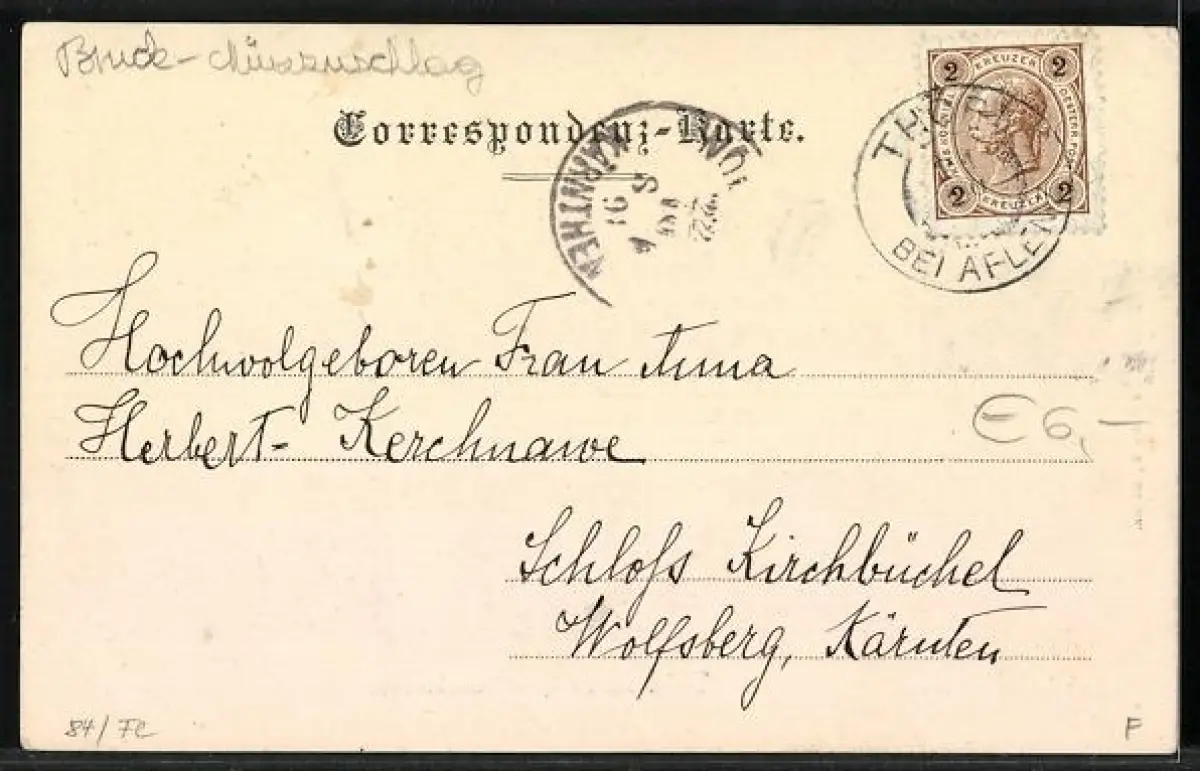 Bruck-Mürzzuschlag
2 KREUZER 2
2 KREUZER 2
Correspondenz-Karte.
TH
BEI AFLENZ
KÄRNTHEN
16
Hochwolgeboren Frau Anna
Herbert-Kerchnawe
€ 6,-
Schloſs Kirchbüchel
Wolfsberg, Kärnten
84/FC
F